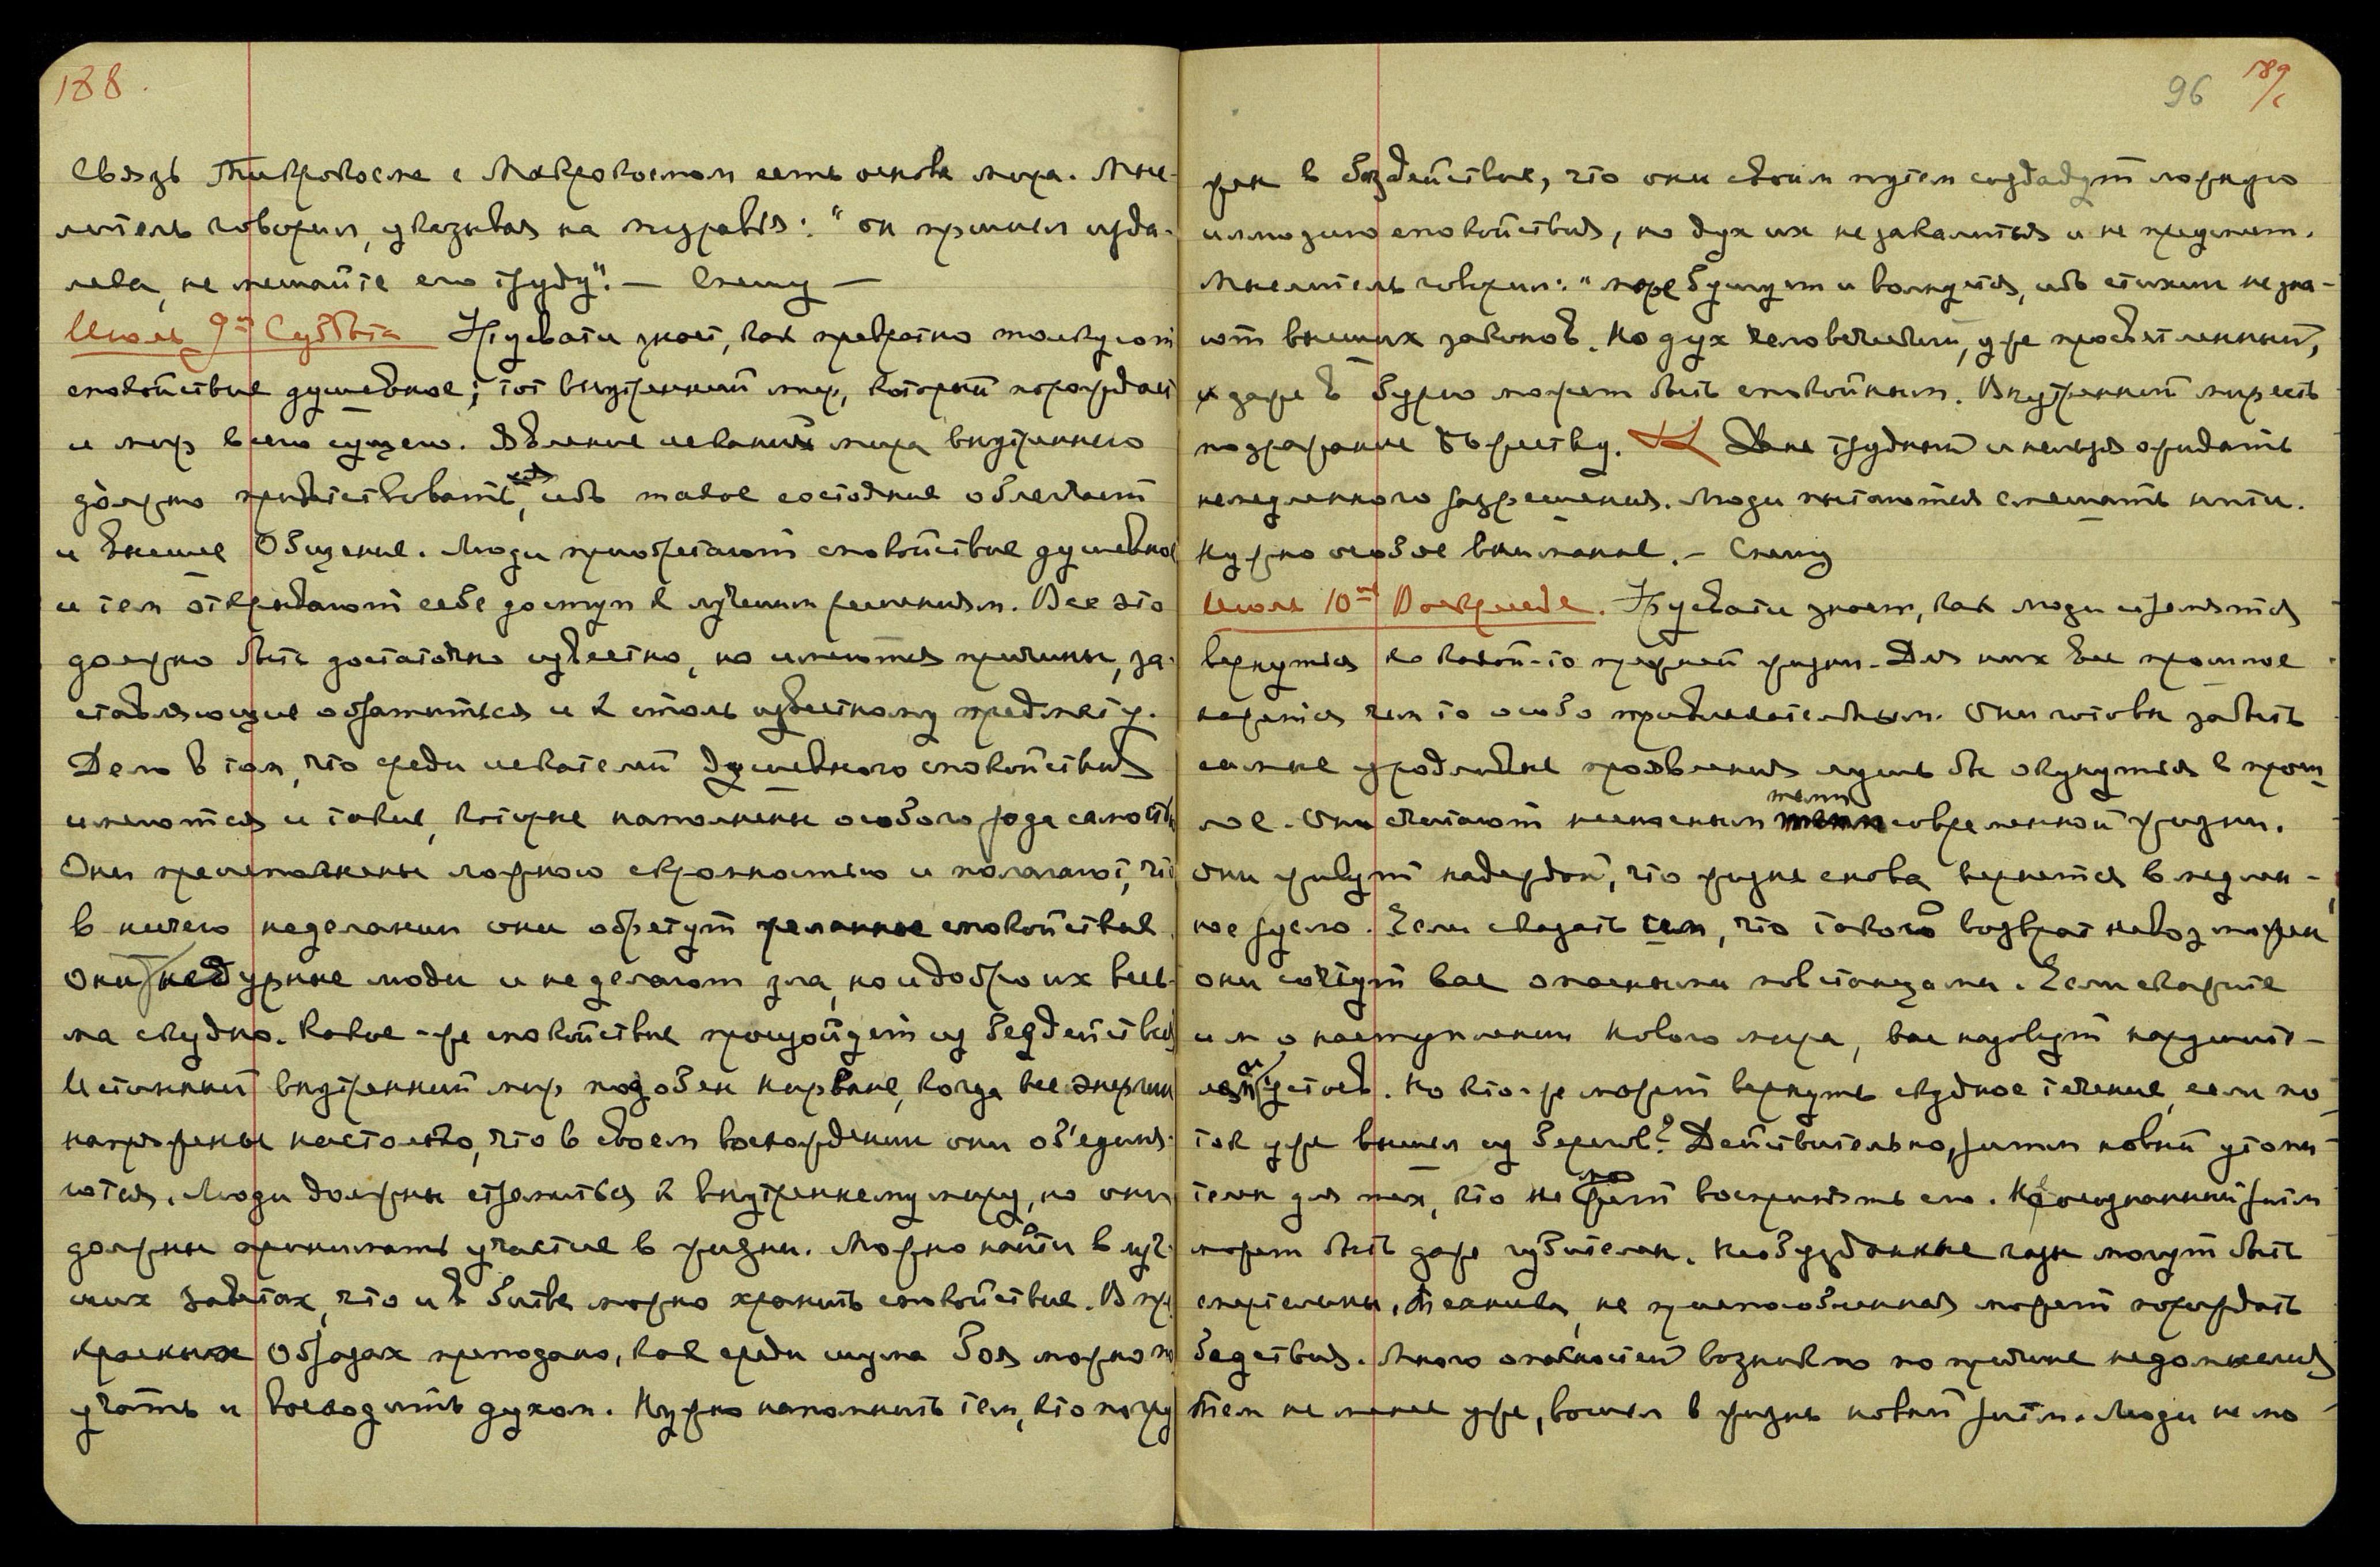 188.
связь Микрокосма с Макрокосмом есть основа мира. Мыс-
литель говорил, указывая на муравья: "он пришел изда-
лека, не мешайте его труду". — Спешу —
Июль 9-го Суббота Урусвати знает, как превратно толкуют
спокойствие душевное; тот внутренний мир, который порождает
и мир всего сущего. Явление искания мира внутреннего
должно приветствоваться, ибо такое состояние облегчает
и Высшее Общение. Люди приобретают спокойствие душевное
и тем открывают себе доступ к лучшим решениям. Все это
должно быть достаточно известно, но имеются причины, за-
ставляющие обратиться и к столь известному предмету.
Дело в том, что среди искателей душевного спокойствия
имеются и такие, которые наполнены особого рода самости
Они преисполнены ложною скромностью и полагают, что
в ничего неделании они обретут желанное спокойствие.
Они недурные люди и не делают зла, но и добро их весь-
ма скудно. Какое-же спокойствие произойдет из бездействия
Истинный внутренний мир подобен нирване, когда все энергии
напряжены настолько, что в своем восхождении они об'единя-
ются. Люди должны стремиться к внутреннему миру, но они
должны принимать участие в жизни. Можно найти в луч-
ших заветах, что и в битве можно хранить спокойствие. В пре
красных Образах преподано, как среди шума боя можно по
учать и восходить духом. Нужно напомнить тем, кто погру
96 189/
жен в бездействие, что они своим путем создадут ложную
иллюзию спокойствия, но дух их не закалится и не преуспеет.
Мыслитель говорил: "море бушует и волнуется, ибо стихии не зна-
ют высших законов. Но дух человеческий, уже просветленный,
и даже в бурю может быть спокойным. Внутренний мир есть
подражание Божеству. День трудный и нельзя ожидать
немедленного разрешения. Люди пытаются смешать нити.
Нужно особое внимание. — Спешу
Июль 10-го Воскресенье. Урусвати знает, как люди стремятся
вернуться ко какой-то прежней жизни. Для них все прошлое
кажется чем то особо привлекательным. Они готовы забыть
самые уродливые проявления лишь бы окунуться в прош
лое. Они считают несносным темп современной жизни.
Они живут надеждой, что жизнь снова вернется в медлен-
ное русло. Если сказать им, что такой возврат невозможен
они сочтут вас опасными повстанцами. Если скажите
им о наступлении нового мира, вас назовут нарушите-
лями устоев. Но кто-же может вернуть скудное течение, если по
ток уже вышел из берегов? Действительно, ритм новый утоми-
телен для тех, кто не может воспринять его. Неосознанный ритм
может быть даже губителен. Необузданные газы могут быть
смертельны, техника не приспособленная может порождать
бедствия. Много опасностей возникло по причине недомыслия
Тем не менее уже, вошел в жизнь новый ритм. Люди не мо